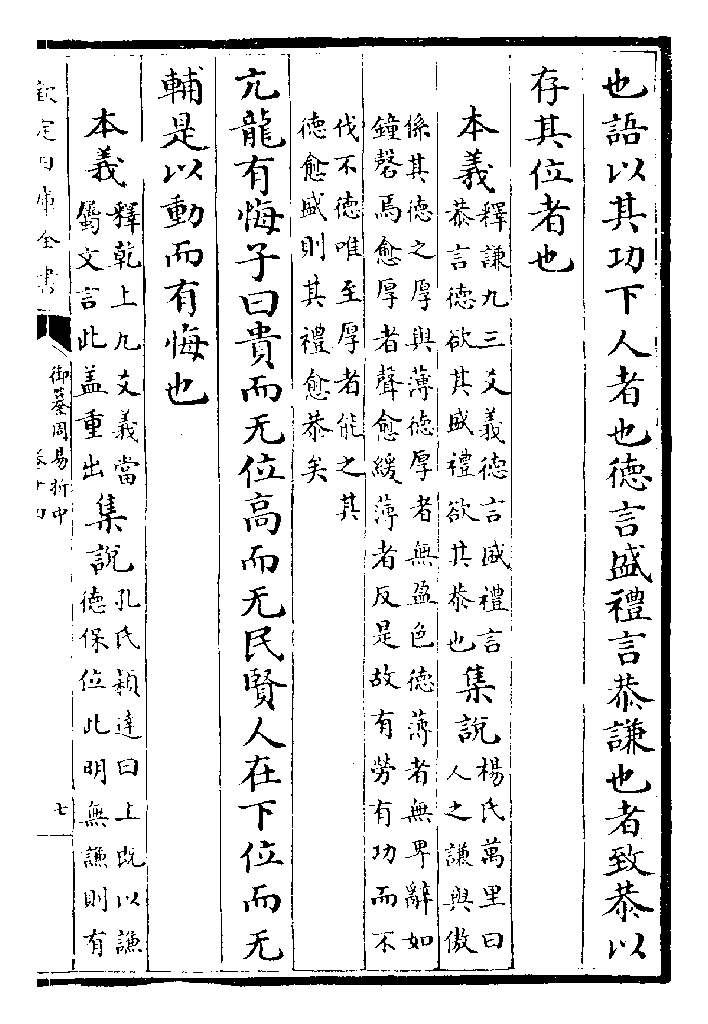 也語以其功下人者也德言盛禮言恭謙也者致恭以
存其位者也
本義釋謙九三爻義德言盛禮言
恭言德欲其盛禮欲其恭也集說楊氏萬里曰
人之謙與傲
係其德之厚與薄德厚者無盈色德薄者無畀辭如
鐘磬焉愈厚者聲愈緩薄者反是故有勞有功而不
伐不德唯至厚者能之其
德愈盛則其禮愈恭矣
亢龍有悔子曰貴而无位高而无民賢人在下位而无
輔是以動而有悔也
本義釋乾上九爻義當
屬文言此盖重出集說孔氏穎達曰上既以謙
德保位此明無謙則有
欽定四庫全書
御纂周易折中
卷十四
七